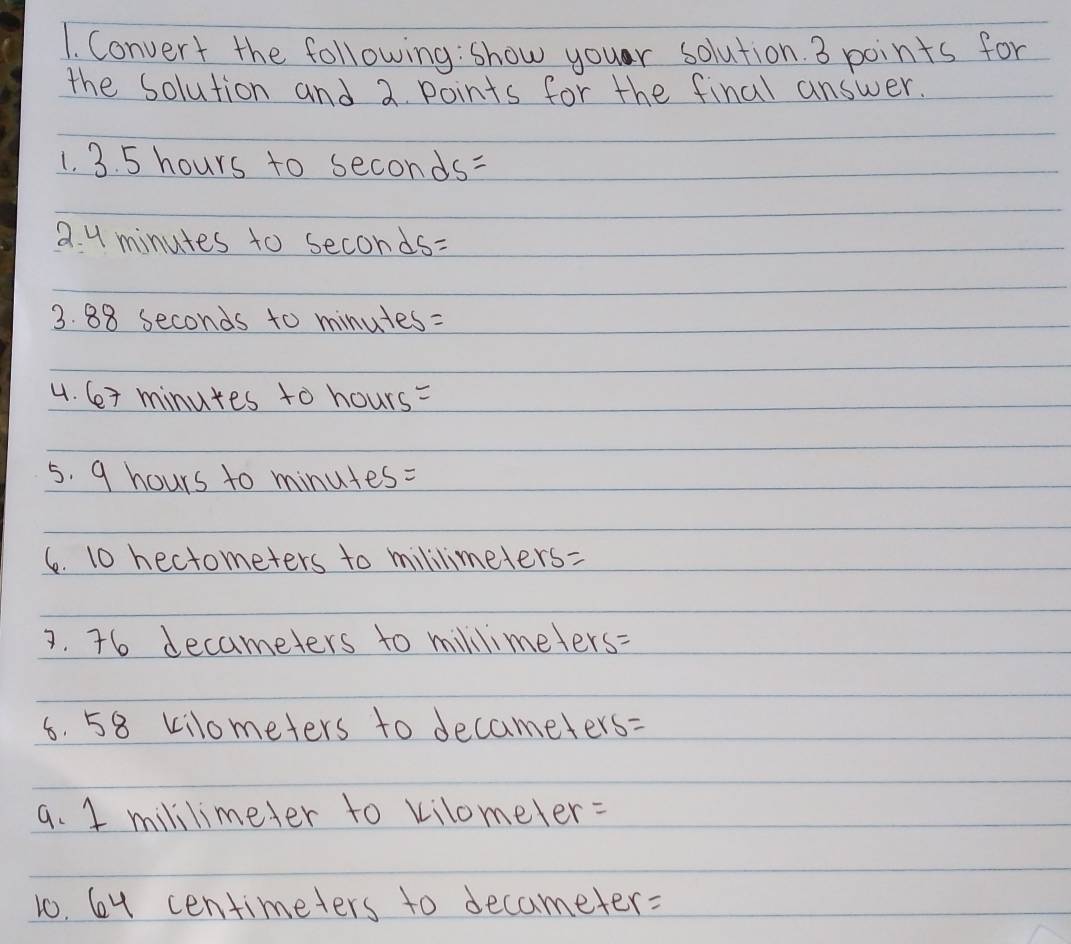 1. Convert the following: Show your solution. 3 points for
the solution and 2. points for the final answer.
1. 3.5 hours to seconds=
2. 4 minutes to seconds=
3. 88 seconds to minutes=
4. 67 minutes to hours=
5. 9 hours to minutes=
6. 10 hectometers to mililimeters=
7. 76 decameters to mililimeters=
8. 58 kilometers to decameters=
9. 1 mililimeter to kilometer=
10. 64 centimeters to decameter=